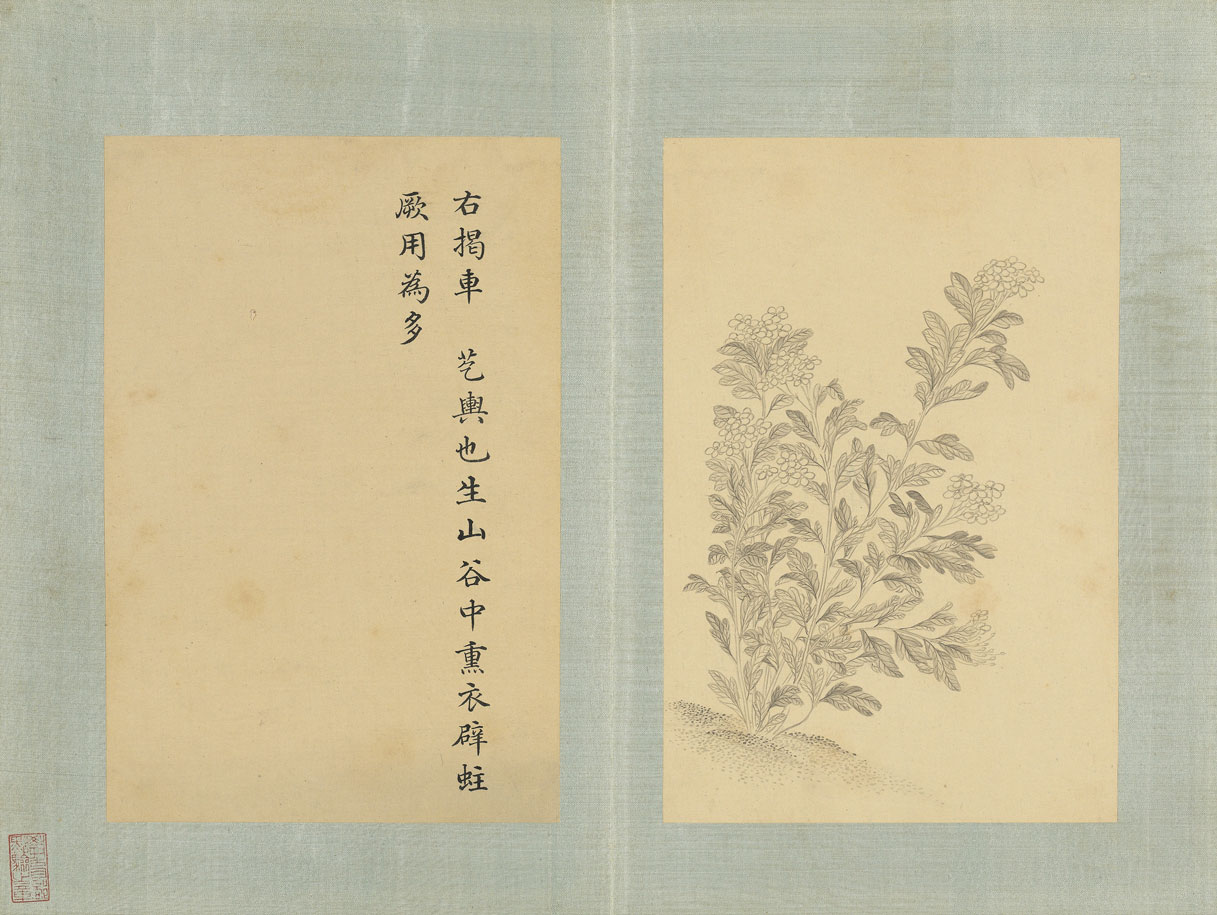 右揭車　芞輿也生山谷中熏衣辟蛀
厥用為多